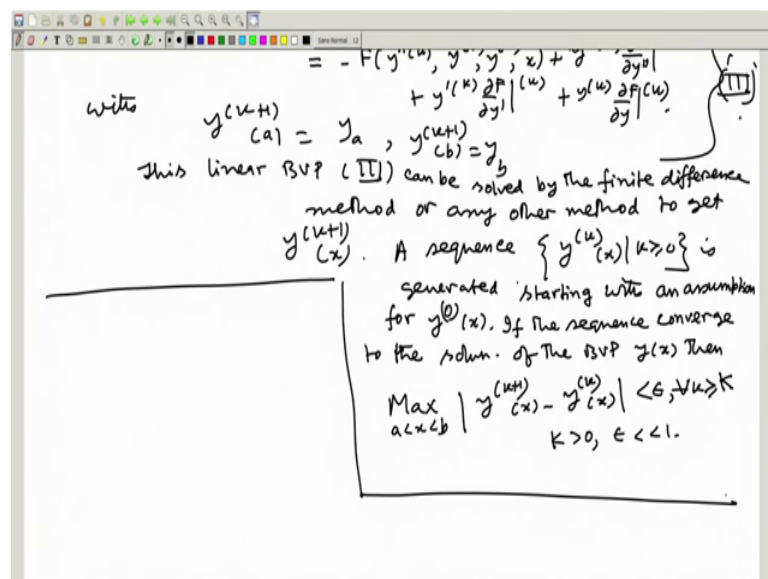 = - F(y''^(k), y'^(k), y^(k), x) + y''^(k) ∂F/∂y''|
+ y'^(k) ∂F/∂y'|^(k) + y^(k) ∂F/∂y|^(k).
(II)
with
y^(k+1)(a) = y_a, y^(k+1)(b) = y_b
This linear BVP (II) can be solved by the finite difference
method or any other method to get
y^(k+1)(x). A sequence {y^(k)(x) | k≥0} is
generated starting with an assumption
for y^(0)(x). If the sequence converge
to the soln. of the BVP y(x) then
Max a<x<b | y^(k+1)(x) - y^(k)(x) | < ε, ∀k≥K
K>0, ε<<1.